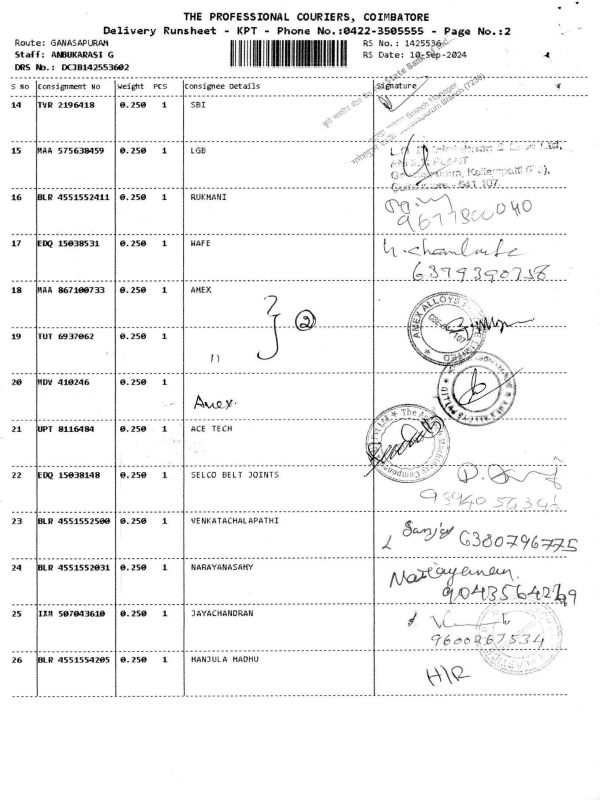 THE PROFESSIONAL COURIERS, COIMBATORE
Delivery Runsheet - KPT - Phone No.:0422-3505555 - Page No.:2
Route: GANASAPURAM
RS No.: 1425536
Staff: ANBUKARASI G
RS Date: 10-Sep-2024
DRS No.: DCJB142553602
S No Consignment No Weight PCS Consignee Details Signature
14 TVR 2196418 0.250 1 SBI
Branch Manager
15 MAA 575638459 0.250 1 LGB
641 107.
16 BLR 4551552411 0.250 1 RUKMANI
9677800040
17 EDQ 15038531 0.250 1 WAFE
6379390758
18 MAA 867100733 0.250 1 AMEX
AMEX ALLOYS
2
19 TUT 6937062 0.250 1 "
20 MDW 410246 0.250 1
Amex.
21 UPT 8116484 0.250 1 ACE TECH
22 EDQ 15038148 0.250 1 SELCO BELT JOINTS
23 BLR 4551552500 0.250 1 VENKATACHALAPATHI
Sanjay 6380796775
24 BLR 4551552031 0.250 1 NARAYANASAMY
Narayanan.
25 IXM 507043610 0.250 1 JAYACHANDRAN
9600267534
26 BLR 4551554205 0.250 1 MANJULA MADHU
H/R